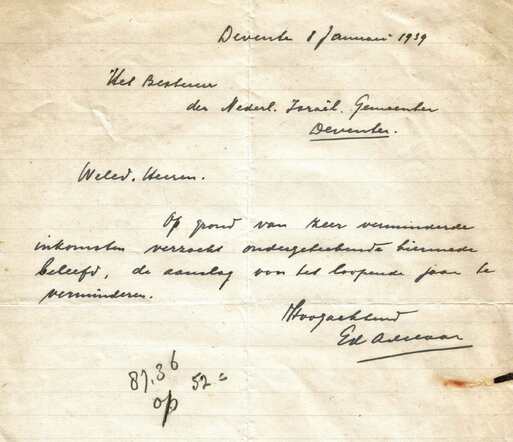 Deventer 8 Januari 1939
Het Bestuur
der Nederl. Israël. Gemeenten
Deventer.
Weled. Heeren.
Op grond van zeer verminderde
inkomsten verzoekt ondergeteekende hiermede
beleefd, de aanslag van het loopende jaar te
verminderen.
Hoogachtend
Ed
87.36
op 52